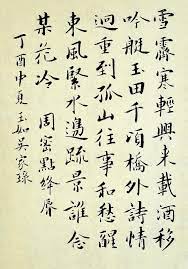 雪霽寒輕興來載酒移
吟艇玉田千頃橋外詩情
迥重到孤山往事和愁醒
東風緊水邊疏景誰念
某花冷 周密點絳脣
丁酉中夏玉如吳家琭